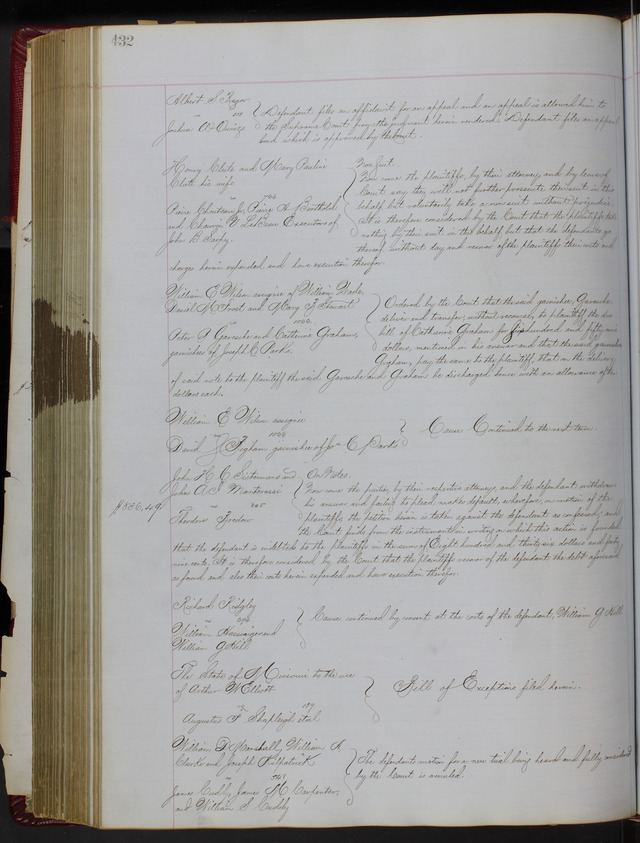 432
Albert S
Joshua A
Defendant files an affidavit for an appeal and an appeal is allowed him to
the Supreme Court from the judgment herein rendered. Defendant files an appeal
bond which is approved by the Court.
Henry Clute and Mary Pauline
Clute his wife
Pierre Chouteau Jr, Pierre A
and Executors of
John B Sarpy.
Non Suit
Now come the plaintiffs, by their attorney, and by leave of
Court say they will not further prosecute their suit in this
behalf but voluntarily take a non suit without prejudice.
It is therefore considered by the Court that the plaintiffs take
nothing by their suit in this behalf but that the defendants go
thereof without day and recover of the plaintiffs their costs and
charges herein expended and have execution therefor.
William E assignee of William Wade,
Daniel and Mary F Stewart
1066
Peter A Garesche and Catherine Graham,
garnishees of Joseph C Parks.
Ordered by the Court that the said garnishee, Garesche
deliver and transfer, without recourse, to plaintiff the due
bill of Catherine Graham for hundred and fifty nine
dollars, mentioned in his answer and that the said garnishee
Graham, pay the same to the plaintiff, that on the delivery
of said note to the plaintiff the said Garesche and Graham be discharged hence with an allowance of the
dollars each.
William E assignee
David garnishee of C Parks
Cause Continued to the next term.
John H C and
John A
Theodore
$836,49
On Notes.
Now come the parties, by their respective attorneys, and the defendant withdraws
his answer and failing to plead, makes default, wherefore, on motion of the
plaintiffs, the petition herein is taken against the defendant as confessed; and
the Court finds from the instruments in writing on which this action is founded
that the defendant is indebted to the plaintiffs in the sum of Eight hundred and thirty six dollars and forty
nine cents. It is therefore considered by the Court that the plaintiffs recover of the defendant the debt aforesaid
so found and also their costs herein expended and have execution therefor.
Richard Ridgley
William and
William G Hill
Cause continued by consent at the costs of the defendant, William G Hill.
The State of Missouri to the use
of Arthur W Elliott
179
Augustus F Shapleigh et al
Bill of Exceptions filed herein.
William D Marshall, William A.
Clark and Joseph Kilpatrick
James Cuddy, James M Carpenter,
and William S Cuddy
The defendants motion for a new trial being heard and fully considered
by the Court is overruled.